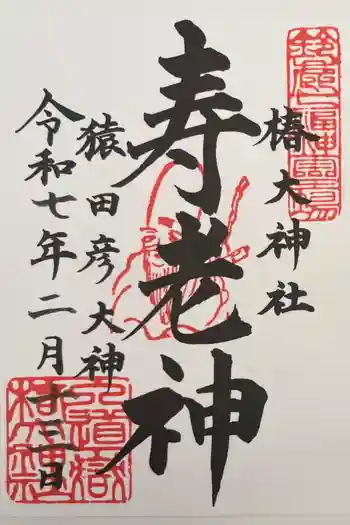 椿大神社
寿老神
猿田彦大神
令和七年二月十三日